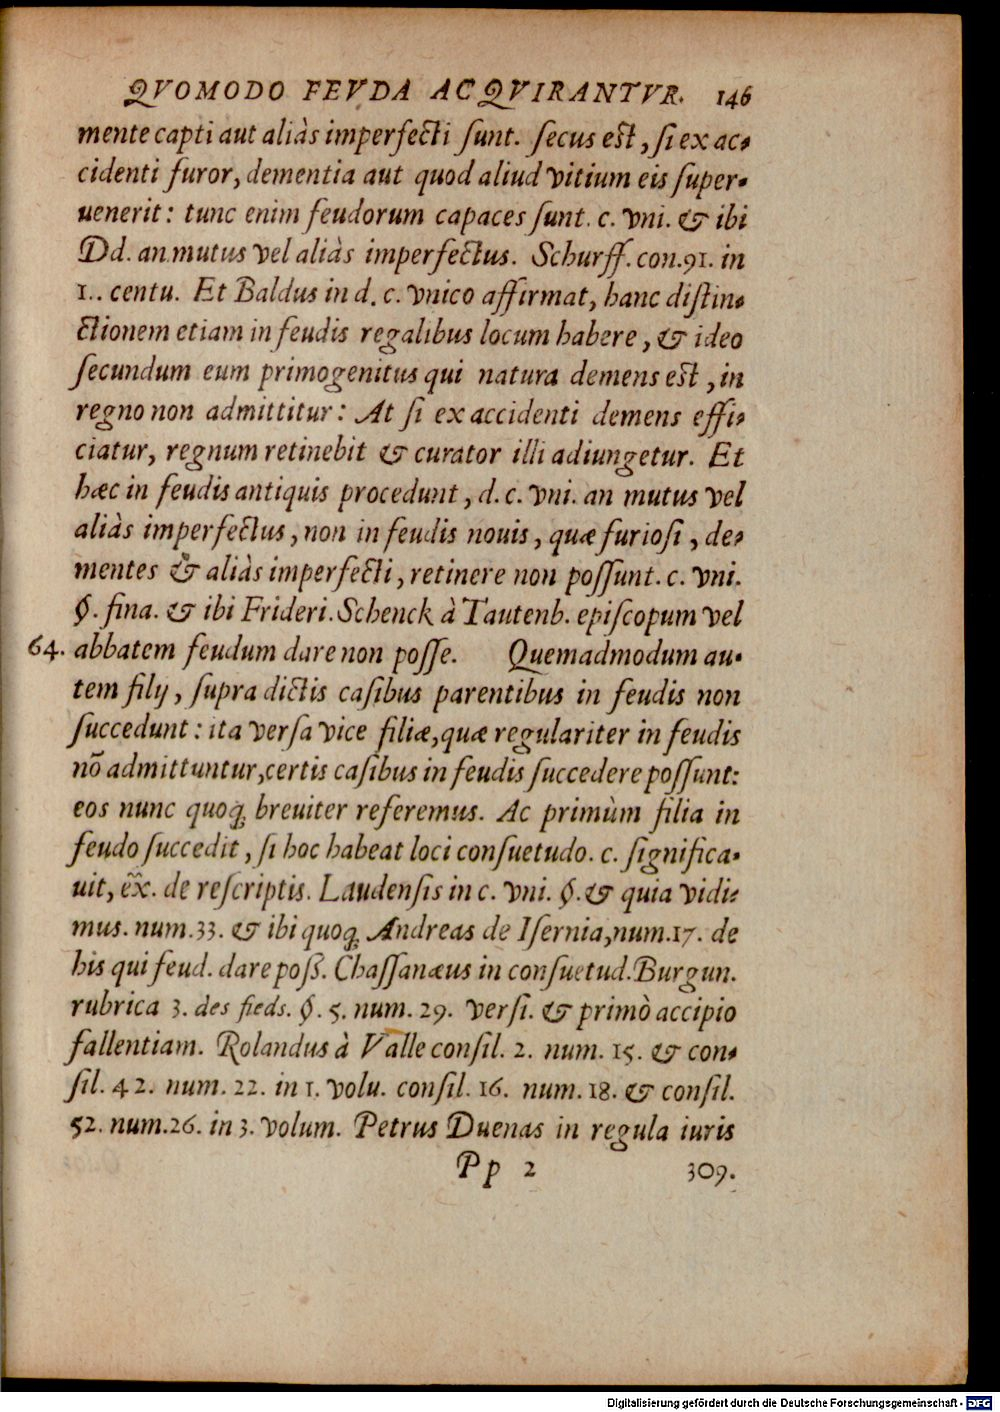 QVOMODO FEVDA ACQVIRANTVR. 146
mente capti aut aliàs imperfecti ſunt. ſecus eſt, ſi ex ac-
cidenti furor, dementia aut quod aliud vitium eis ſuper-
uenerit: tunc enim feudorum capaces ſunt. c. vni. & ibi
Dd. an mutus vel aliàs imperfectus. Schurff. con. 91. in
1.. centu. Et Baldus in d. c. vnico affirmat, hanc diſtin-
ctionem etiam in feudis regalibus locum habere, & ideo
ſecundum eum primogenitus qui natura demens eſt, in
regno non admittitur: At ſi ex accidenti demens effi-
ciatur, regnum retinebit & curator illi adiungetur. Et
hæc in feudis antiquis procedunt, d. c. vni. an mutus vel
aliàs imperfectus, non in feudis nouis, quæ furioſi, de-
mentes & aliàs imperfecti, retinere non poſſunt. c. vni.
§. fina. & ibi Frideri. Schenck à Tautenb. epiſcopum vel
64. abbatem feudum dare non poſſe. Quemadmodum au-
tem filij, ſupra dictis caſibus parentibus in feudis non
ſuccedunt: ita verſa vice filiæ, quæ regulariter in feudis
nō admittuntur, certis caſibus in feudis ſuccedere poſſunt:
eos nunc quoq; breuiter referemus. Ac primùm filia in
feudo ſuccedit, ſi hoc habeat loci conſuetudo. c. ſignifica-
uit, ex̄. de reſcriptis. Laudenſis in c. vni. §. & quia vidi-
mus. num. 33. & ibi quoq; Andreas de Iſernia, num. 17. de
his qui feud. dare poſſ. Chaſſanæus in conſuetud. Burgun.
rubrica 3. des fieds. §. 5. num. 29. verſi. & primò accipio
fallentiam. Rolandus à Valle conſil. 2. num. 15. & con-
ſil. 42. num. 22. in 1. volu. conſil. 16. num. 18. & conſil.
52. num. 26. in 3. volum. Petrus Duenas in regula iuris
Pp 2 309.
Digitalisierung gefördert durch die Deutsche Forschungsgemeinschaft - DFG